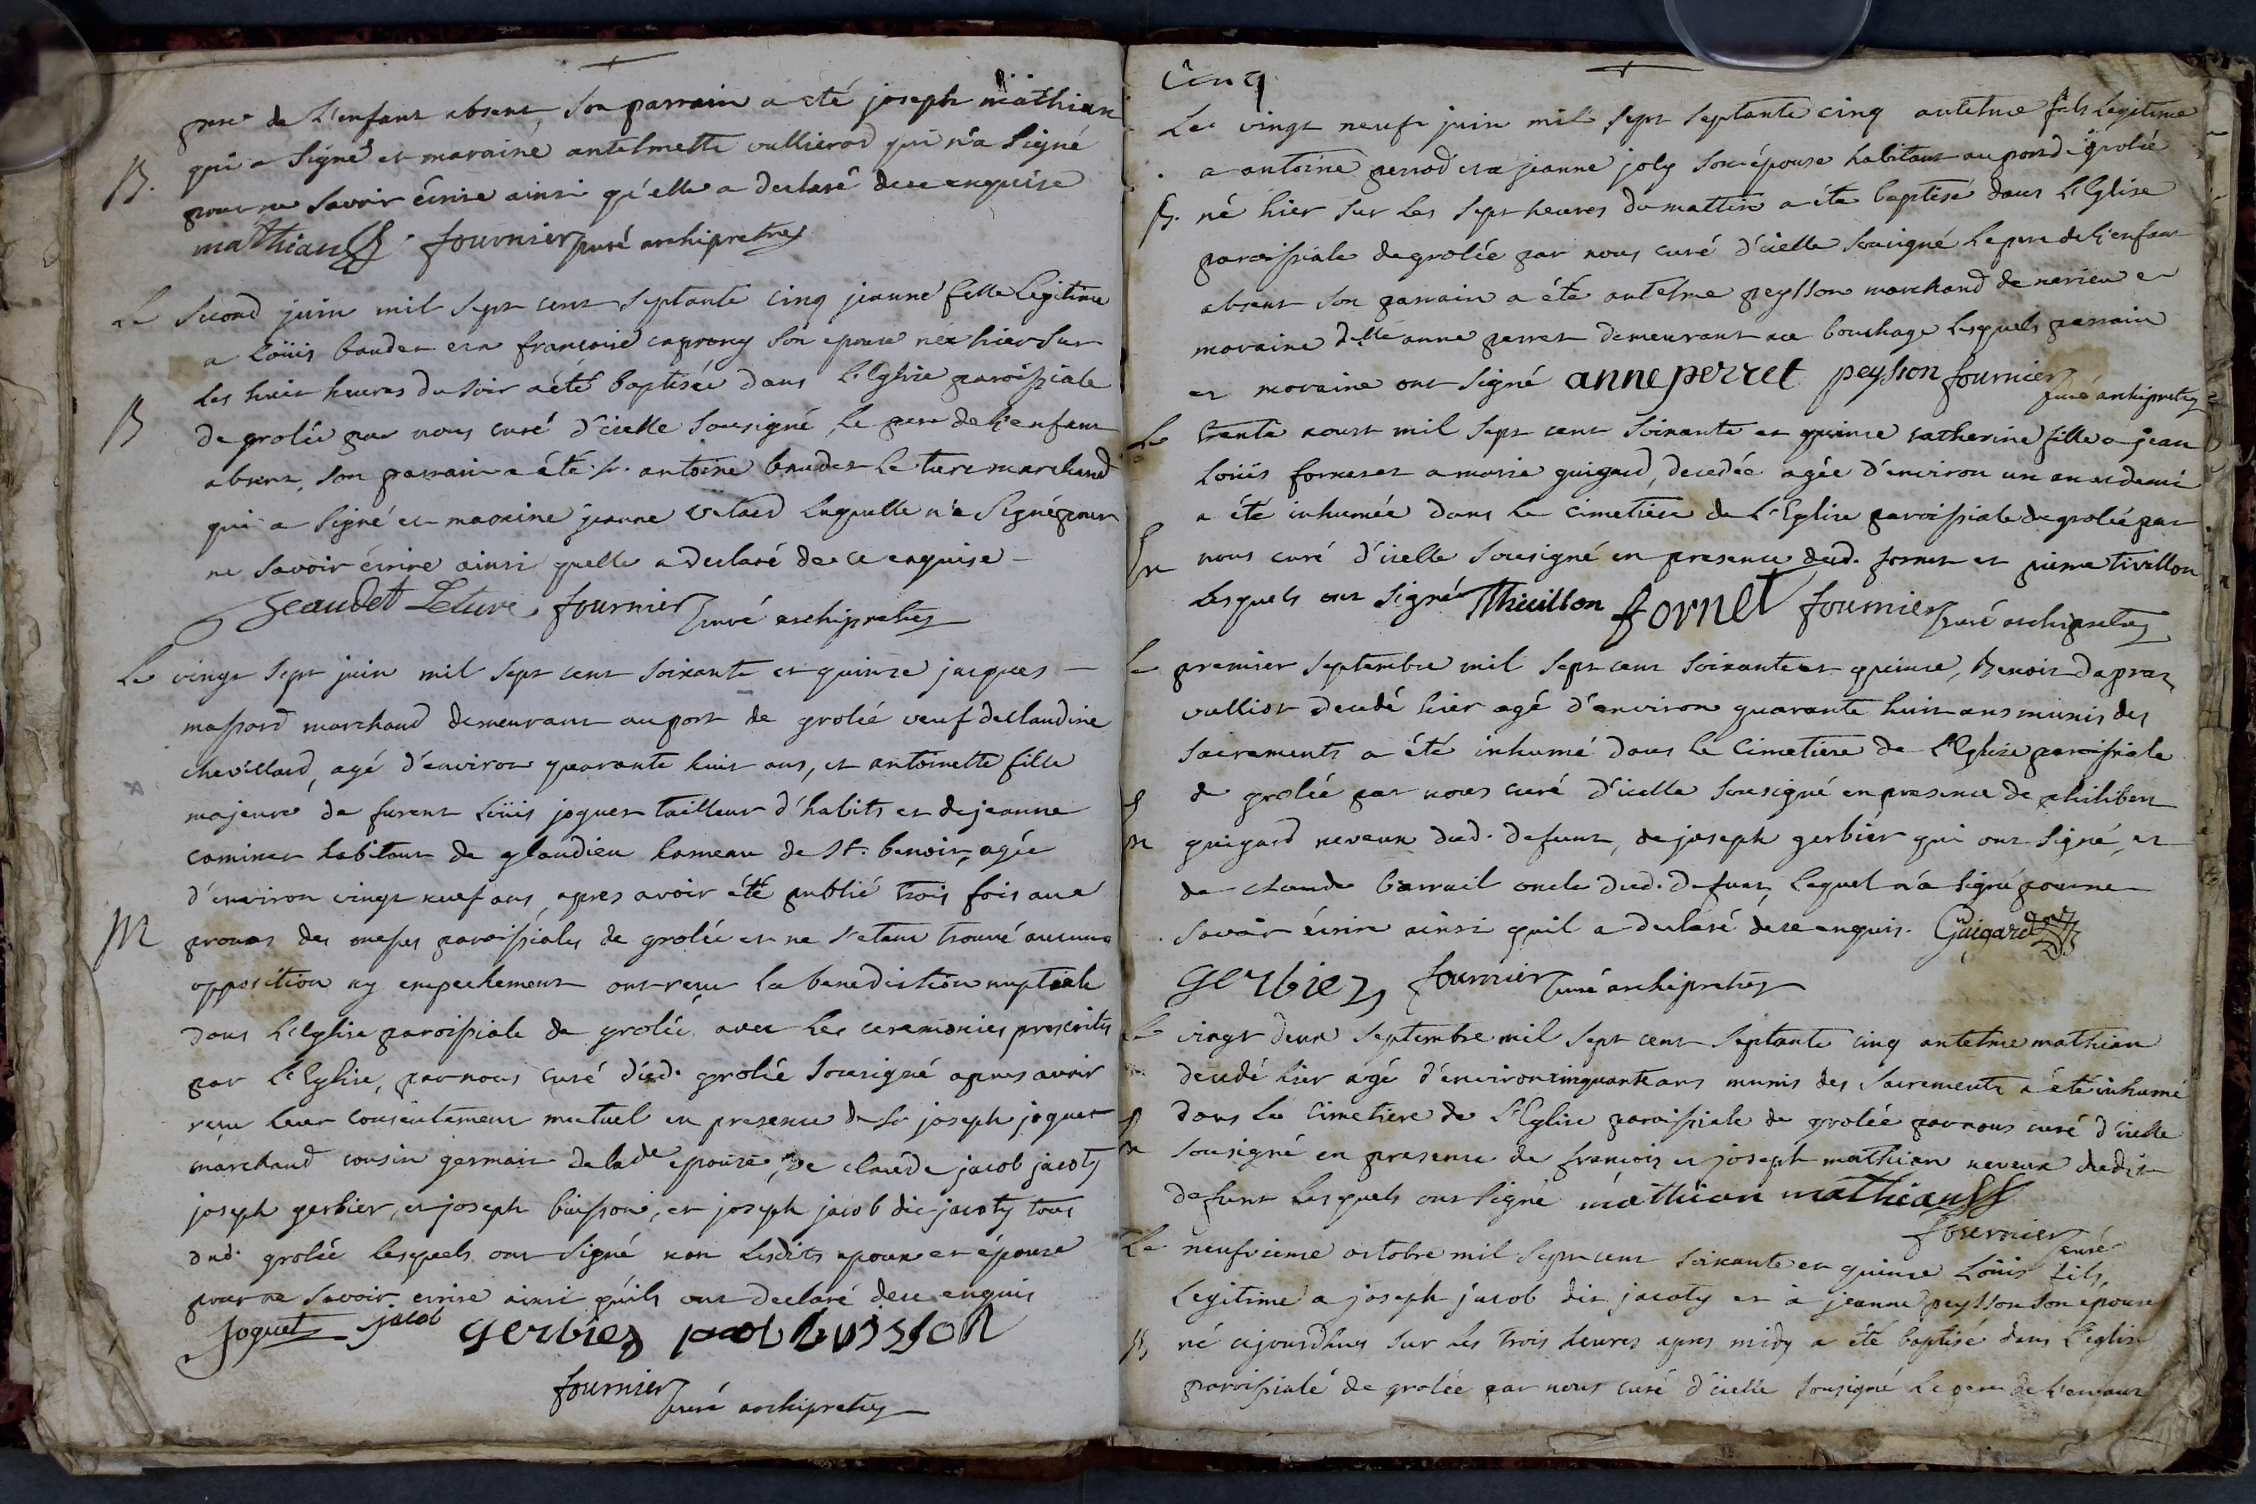 pere de L'enfant absent, son parrain a eté joseph mathian
B. qui a Signé et maraine antelmette vullierod qui n'a Signé
pour ne Savoir écrire ainsi qu'elle a declaré de ce enquise
mathian fournier curé archipretre
Le Second juin mil Sept cent Septante cinq jeanne fille Legitime
a Loüis baudet et a francoise caprony Son epouse née hier Sur
Les huit heures du Soir a été baptisée dans L'Eglise paroissiale
B de grolée par nous curé d'icelle Sousigné, Le pere de L'enfant
absent, son parrain a été Sr. antoine baudet Le ture marchand
qui a Signé et maraine jeanne Laquelle n'a Signé pour
ne Savoir écrire ainsi quelle a declaré de ce enquise
Beaudet Leture, fournier curé archipretre
Le vingt Sept juin mil Sept cent Soixante et quinze jacques
massord marchand demeurant au port de grolée veuf de claudine
chevillard, agé d'environ quarante huit ans, et antoinette fille
majeure de furent Loüis joguet tailleur d'habits et de jeanne
cominet habitant de glandieu hameau de St. benoit, agée
d'environ vingt neuf ans, apres avoir été publié trois fois aux
M prones des messes paroissiales de grolée et ne s'etant trouvé aucune
opposition ny empechement ont reçu La benediction nuptiale
dans L'Eglise paroissiale de grolée, avec Les ceremonies prescrites
par L'Eglise, par nous curé dud. grolée Sousigné apres avoir
reçu Leur consentement mutuel en presence de Sr joseph joguet
marchand cousin germain de lade epouse, de claude jacob jacoty
joseph gerbier, et joseph buisson, et joseph jacob dit jacoty tous
dud. grolée Lesquels ont Signé non Lesdits epoux et épouse
pour ne Savoir ecrire ainsi qu'ils ont declaré de ce enquis
Joguet jacob gerbier jacob buisson
fournier curé archipretre
Cinq
Le vingt neuf juin mil Sept Septante cinq antelme fils Legitime
a antoine perrod et a jeanne joly Son épouse habitant au port de grolée
B. né hier Sur Les Sept heures du mattin a été baptisé dans L'Eglise
paroissiale de grolée par nous curé d'icelle Sousigné Le pere de L'enfant
absent Son parrain a été antelme peysson marchand de nerieu et
maraine delle anne perret demeurant au bouchage Lesquels parrain
et maraine ont Signé anne perret peysson fournier curé archipretre
Le trente aoust mil Sept cent Soixante et quinze catherine fille a jean
Loüis forneret a marie guigard, decedée agée d'environ un an et demi
a été inhumée dans Le Cimetiere de L'Eglise paroissiale de grolée par
nous curé d'icelle Sousigné en presence dud. fornet et pierre tivillon
Lesquels ont Signé Thivillon fornet fournier curé archipretre
Le premier Septembre mil Sept cent Soixante et quinze, Benoit dapraz
vulliot decedé hier agé d'environ quarante huit ans munis des
Sacrements a été inhumé dans Le Cimetiere de L'Eglise paroissiale
de grolée par nous curé d'icelle Sousigné en presence de philibert
guigard neveux dud. defunt, de joseph gerbier qui ont Signé, et
de claude barrail oncle dud. defunt, Lequel n'a Signé pour ne
Savoir écrire ainsi qu'il a declaré de ce enquis. Guigard
gerbier fournier curé archipretre
Le vingt deux Septembre mil Sept cent Septante cinq antelme mathian
decedé hier agé d'environ cinquante ans munis des Sacrements a été inhumé
dans Le Cimetiere de L'Eglise paroissiale de grolée par nous curé d'icelle
Sousigné en presence de francois et joseph mathian neveux dudit
defunt Lesquels ont Signé mathian mathian
fournier curé
Le neufvieme octobre mil Sept cent Soixante et quinze Loüis fils
Legitime a joseph jacob dit jacoty et a jeanne peysson Son epouse
B né cejourdhuy Sur Les trois heures apres midy a été baptisé dans L'eglise
paroissiale de grolée par nous curé d'icelle Sousigné Le pere de L'enfant